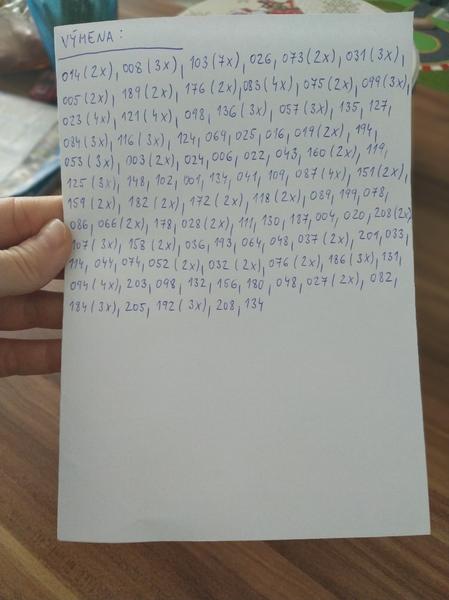 VÝMENA:
014(2x), 008(3x), 103(7x), 026, 073(2x), 031(3x),
005(2x), 189(2x), 176(2x), 083(4x), 075(2x), 099(3x),
023(4x), 121(4x), 098, 136(3x), 057(3x), 135, 127,
084(3x), 116(3x), 124, 069, 025, 016, 019(2x), 194,
053(3x), 003(2x), 024, 006, 022, 043, 160(2x), 119,
125(3x), 148, 102, 001, 134, 041, 109, 087(4x), 151(2x),
159(2x), 182(2x), 172(2x), 118(2x), 089, 199, 078,
086, 066(2x), 178, 028(2x), 111, 130, 187, 004, 020, 208(2x),
107(3x), 158(2x), 036, 193, 064, 048, 037(2x), 201, 033,
114, 044, 074, 052(2x), 032(2x), 076(2x), 186(3x), 131,
094(4x), 203, 098, 132, 156, 180, 048, 027(2x), 082,
184(3x), 205, 192(3x), 208, 134